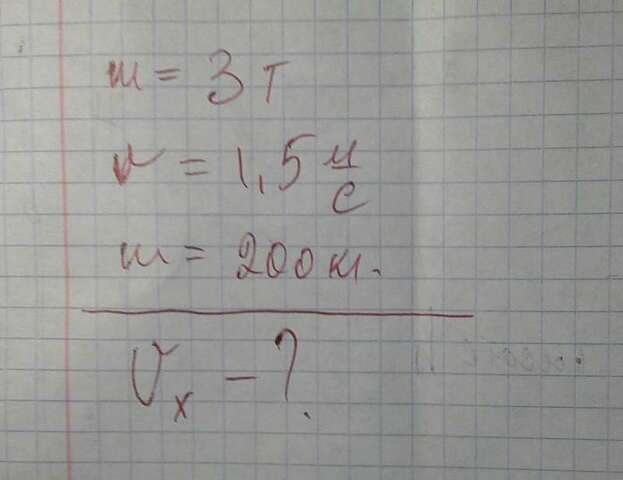 m = 3 т
v = 1,5 м/с
m = 200 кг.
υₓ - ?